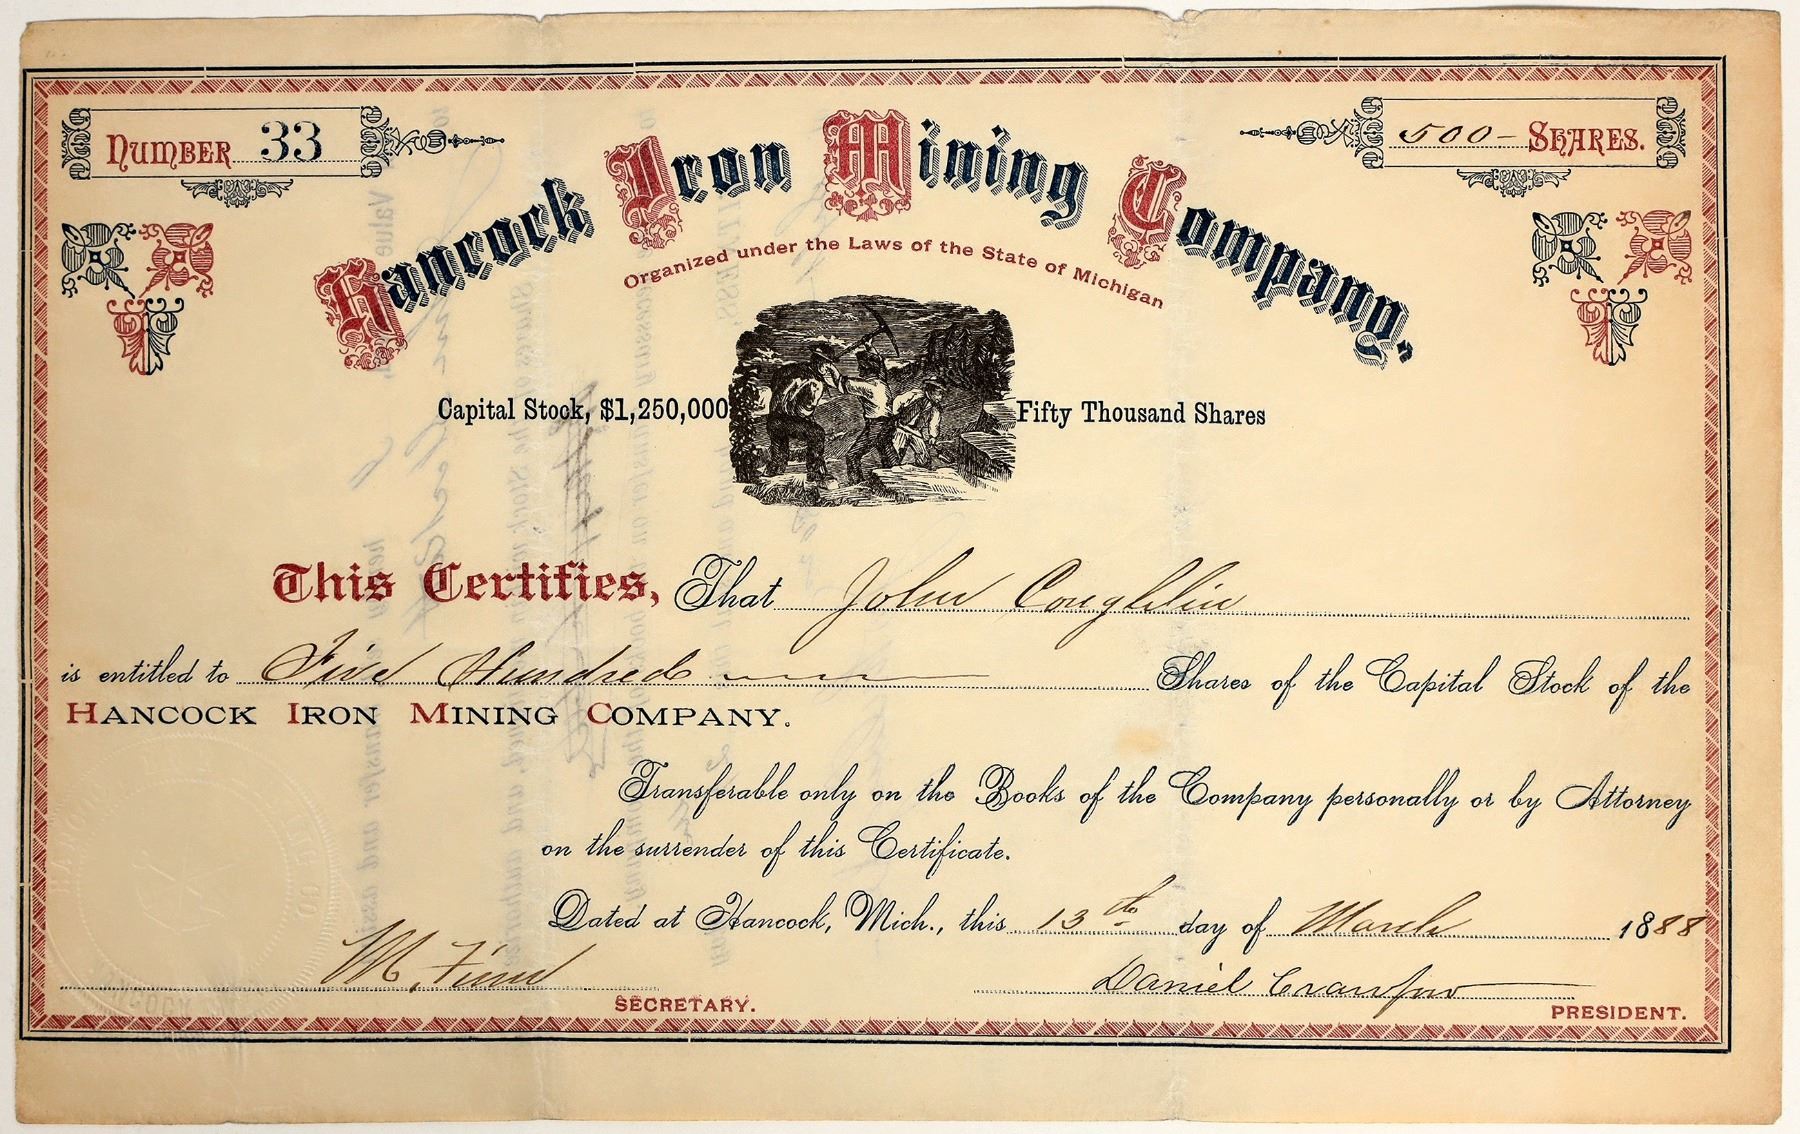 Number 33
500 – Shares.
Hancock Iron Mining Company.
Organized under the Laws of the State of Michigan
Capital Stock, $1,250,000 Fifty Thousand Shares
This Certifies, That John Coughlin
is entitled to Five Hundred Shares of the Capital Stock of the
Hancock Iron Mining Company.
Transferable only on the Books of the Company personally or by Attorney
on the surrender of this Certificate.
Dated at Hancock, Mich., this 13th day of March 1888
M. Finn
Secretary.
Daniel Crawford
President.